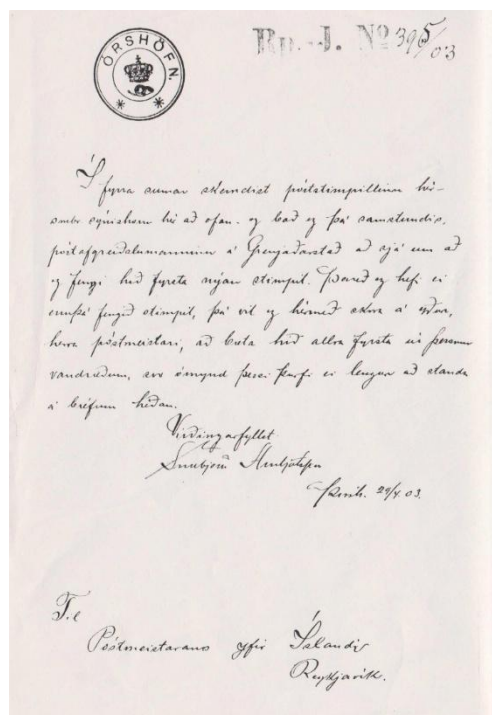 ÖRSHÖFN.
Rp. J. Nº 395/03
Í fyrra sumar skemdist póststimpillinn hér-
smbr sýnishorn hér að ofan. og bað eg þá samstundis.
póstafgreiðslumanninn á Grenjaðarstað að sjá um að
eg fengi hið fyrsta nýjan stimpil. Þareð eg hefi ei
ennþá fengið stimpil, þá vil eg hérmeð skora á yður,
herra póstmeistari, að bæta hið allra fyrsta úr þessum
vandræðum, svo ómynd þessi þurfi ei lengur að standa
á bréfum héðan.
Virðingarfyllst
Snæbjörn Arnljótsson
Þórsh. 29/4 03.
Til
Póstmeistarans yfir Íslandi
Reykjavík.